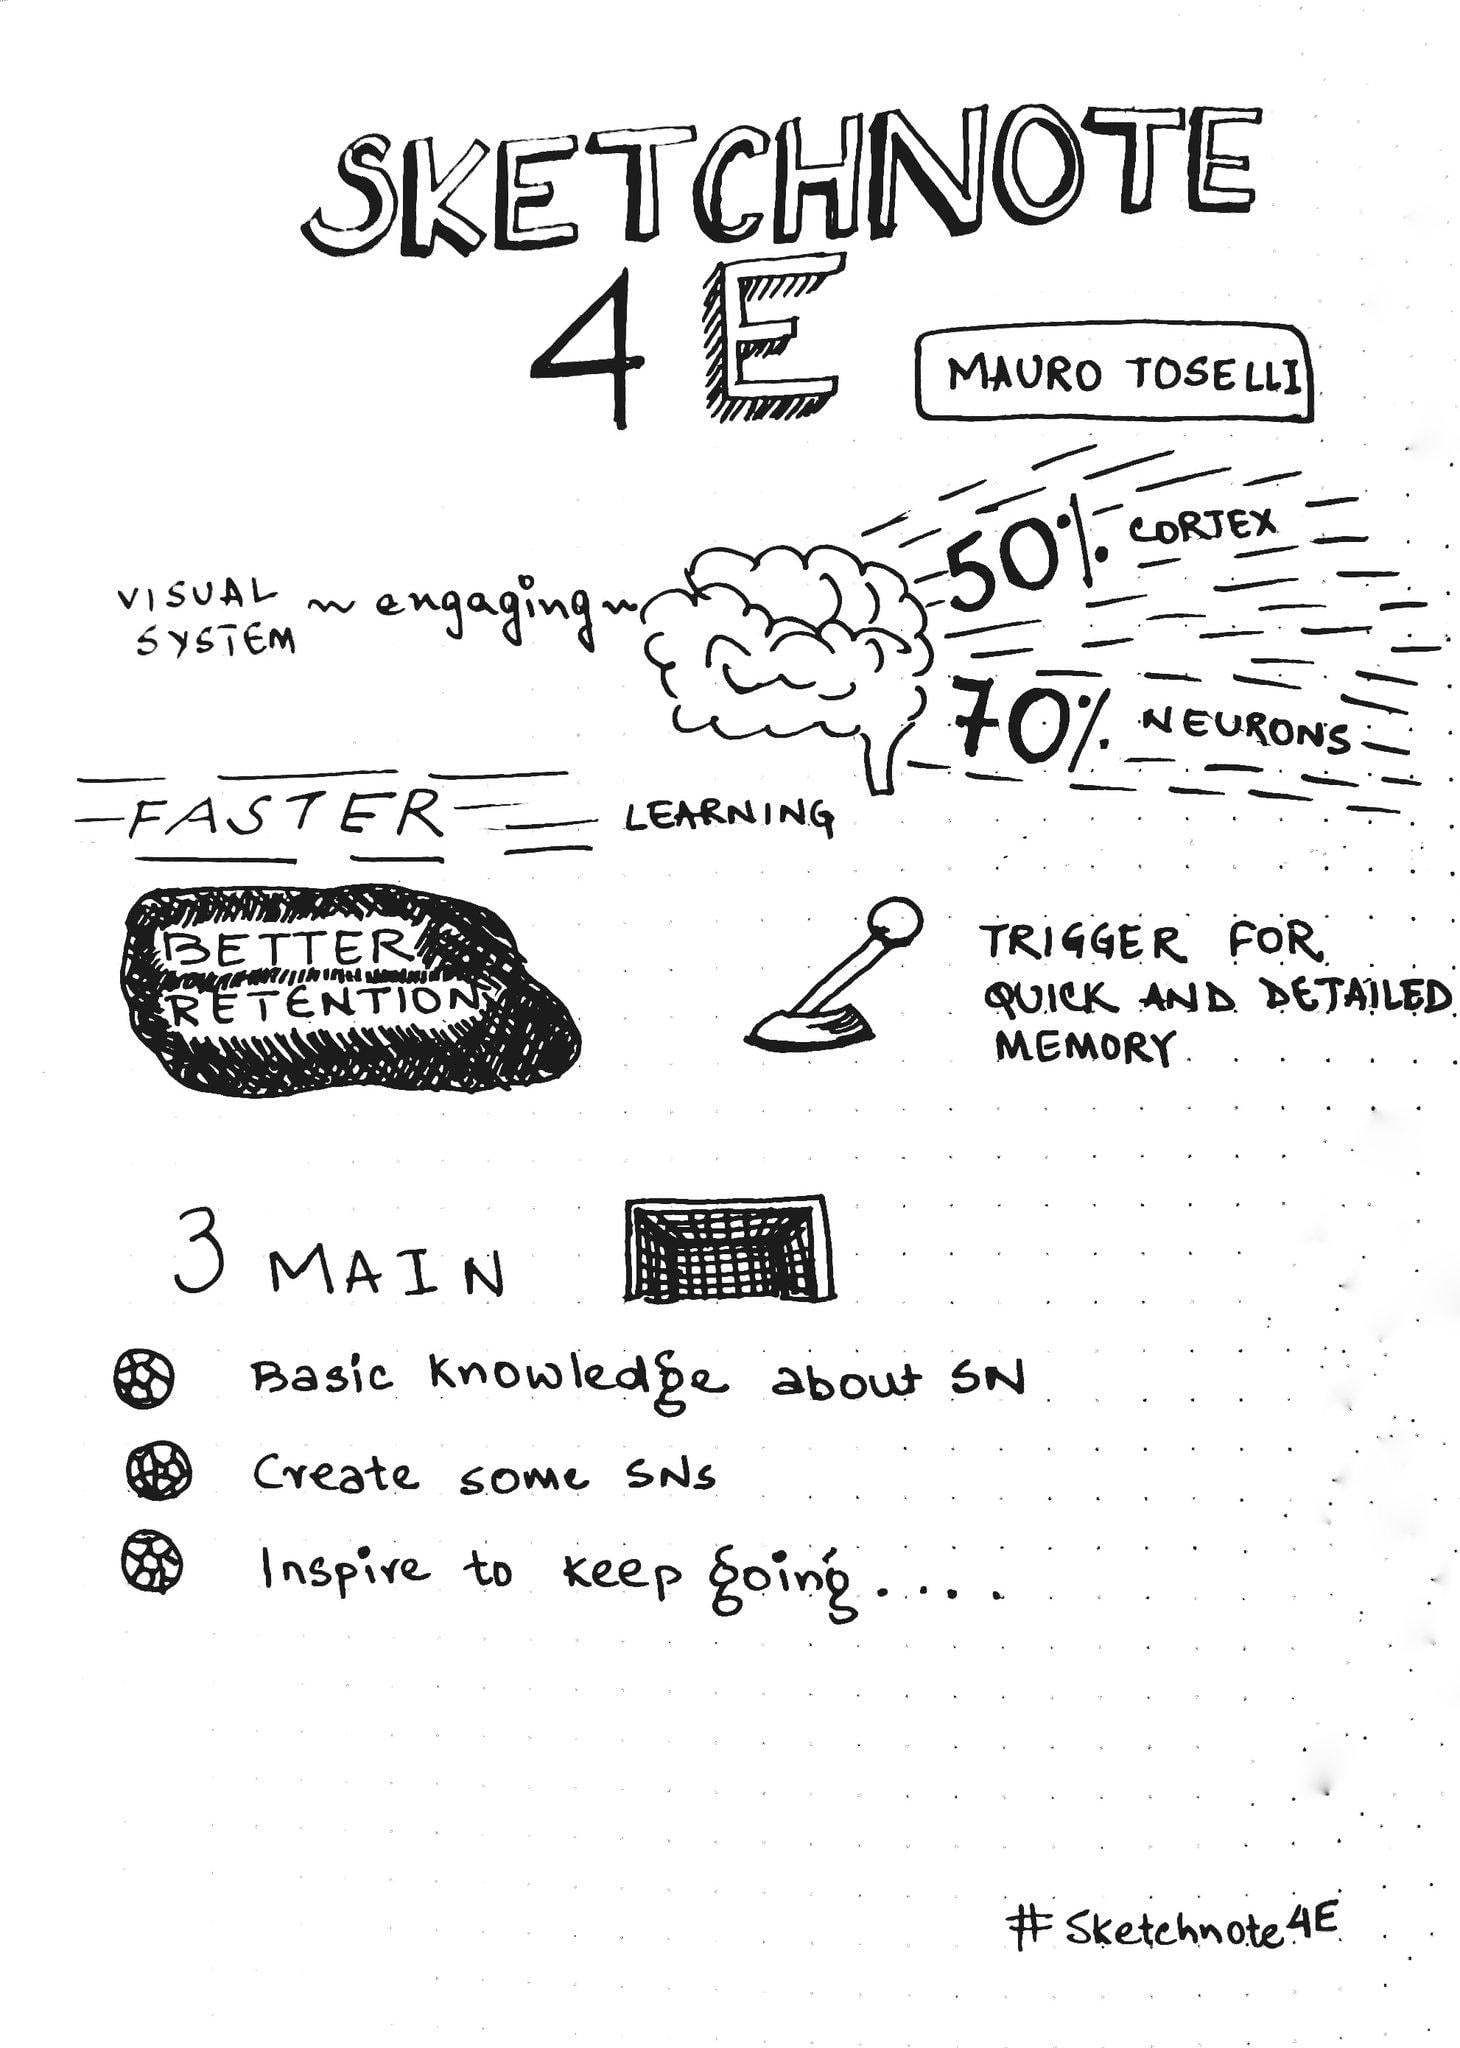 SKETCHNOTE
4E
MAURO TOSELLI
VISUAL
SYSTEM
~ engaging ~
50% CORTEX
70% NEURONS
FASTER LEARNING
BETTER
RETENTION
TRIGGER FOR
QUICK AND DETAILED
MEMORY
3 MAIN
Basic knowledge about SN
Create some SNs
Inspire to keep going.....
#Sketchnote4E